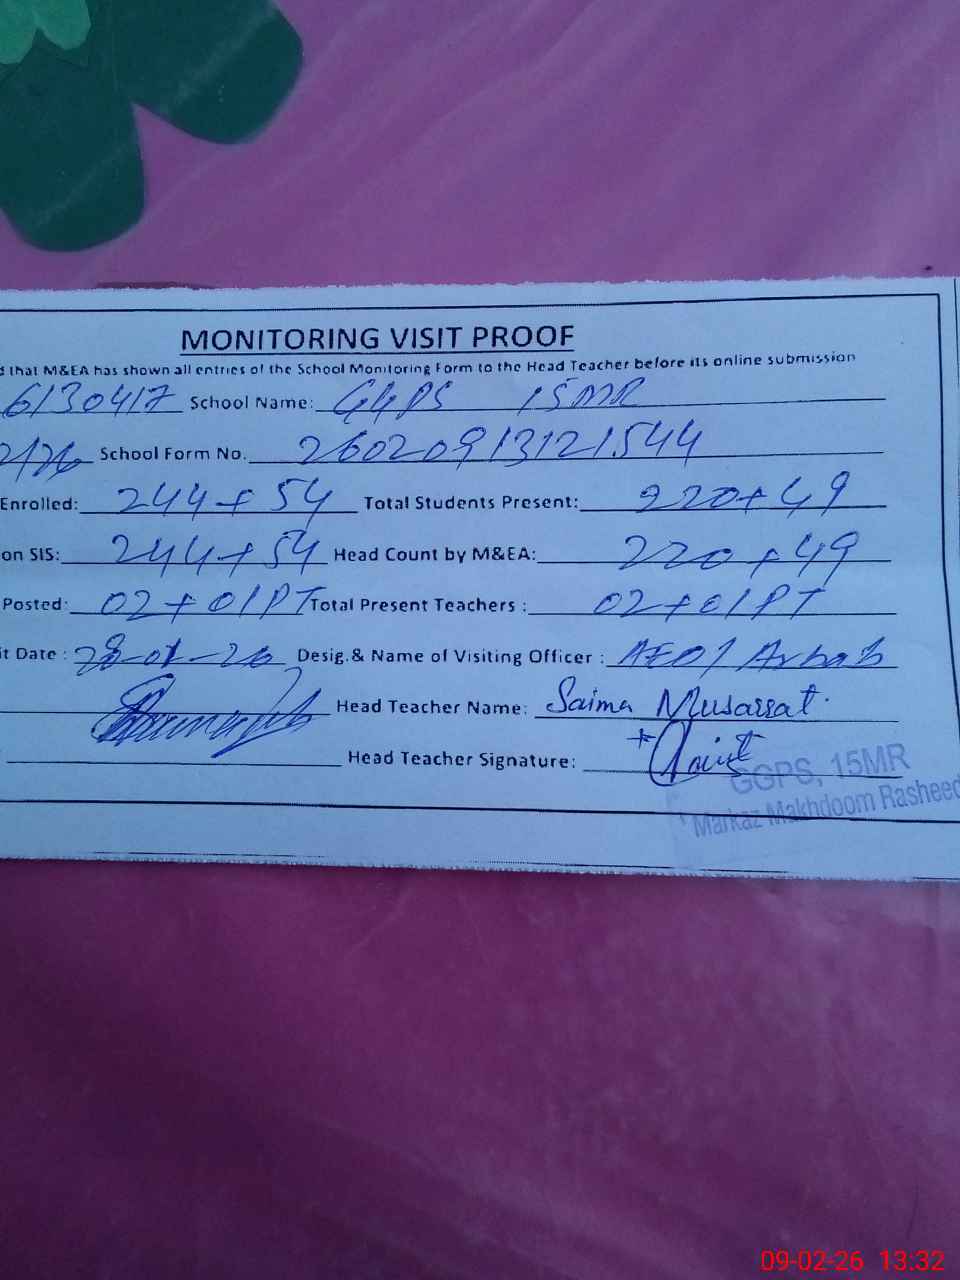 MONITORING VISIT PROOF
that M&EA has shown all entries of the School Monitoring Form to the Head Teacher before its online submission
6130417 School Name: GGPS 15MR
2/26 School Form No. 26020913121544
Enrolled: 244+54 Total Students Present: 220+49
on SIS: 244+54 Head Count by M&EA: 220+49
Posted: 02+01PT Total Present Teachers : 02+01PT
it Date : 28-01-26 Desig.& Name of Visiting Officer : AEO/ Arbab
Head Teacher Name: Saima Musarrat.
Head Teacher Signature:
GGPS, 15MR
Markaz Makhdoom Rasheed
09-02-26 13:32